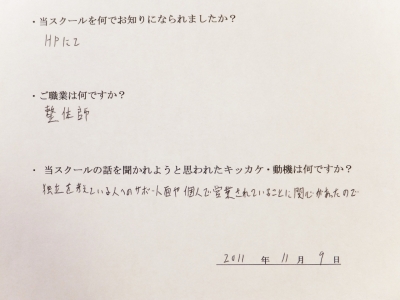 ・当スクールを何でお知りになられましたか？
HPにて
・ご職業は何ですか？
整体師
・当スクールの話を聞かれようと思われたキッカケ・動機は何ですか？
独立を考えている人へのサポート面や個人で営業されていることに関心がわいたので
2011 年 11 月 9 日